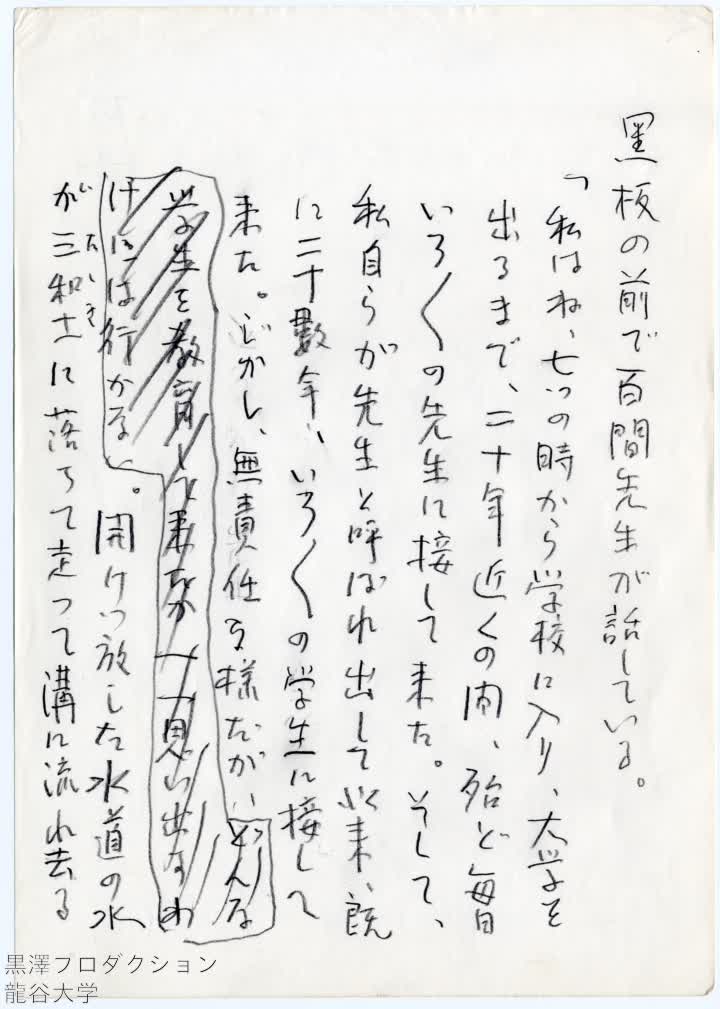 黒板の前で百間先生が話している。
「私はね、七つの時から学校に入り、大学を
出るまで、二十年近くの間、殆ど毎日
いろ〱の先生に接して来た。そして、
私自らが先生と呼ばれ出して以来、既
に二十數年、いろ〱の学生に接して
来た。しかし、無責任な様だが、どんな
学生を教育して来たか一々思い出すわ
けには行かない。開けっ放した水道の水
が三和土に落ちて走って溝に流れ去る
たゝき
黒澤プロダクション
龍谷大学